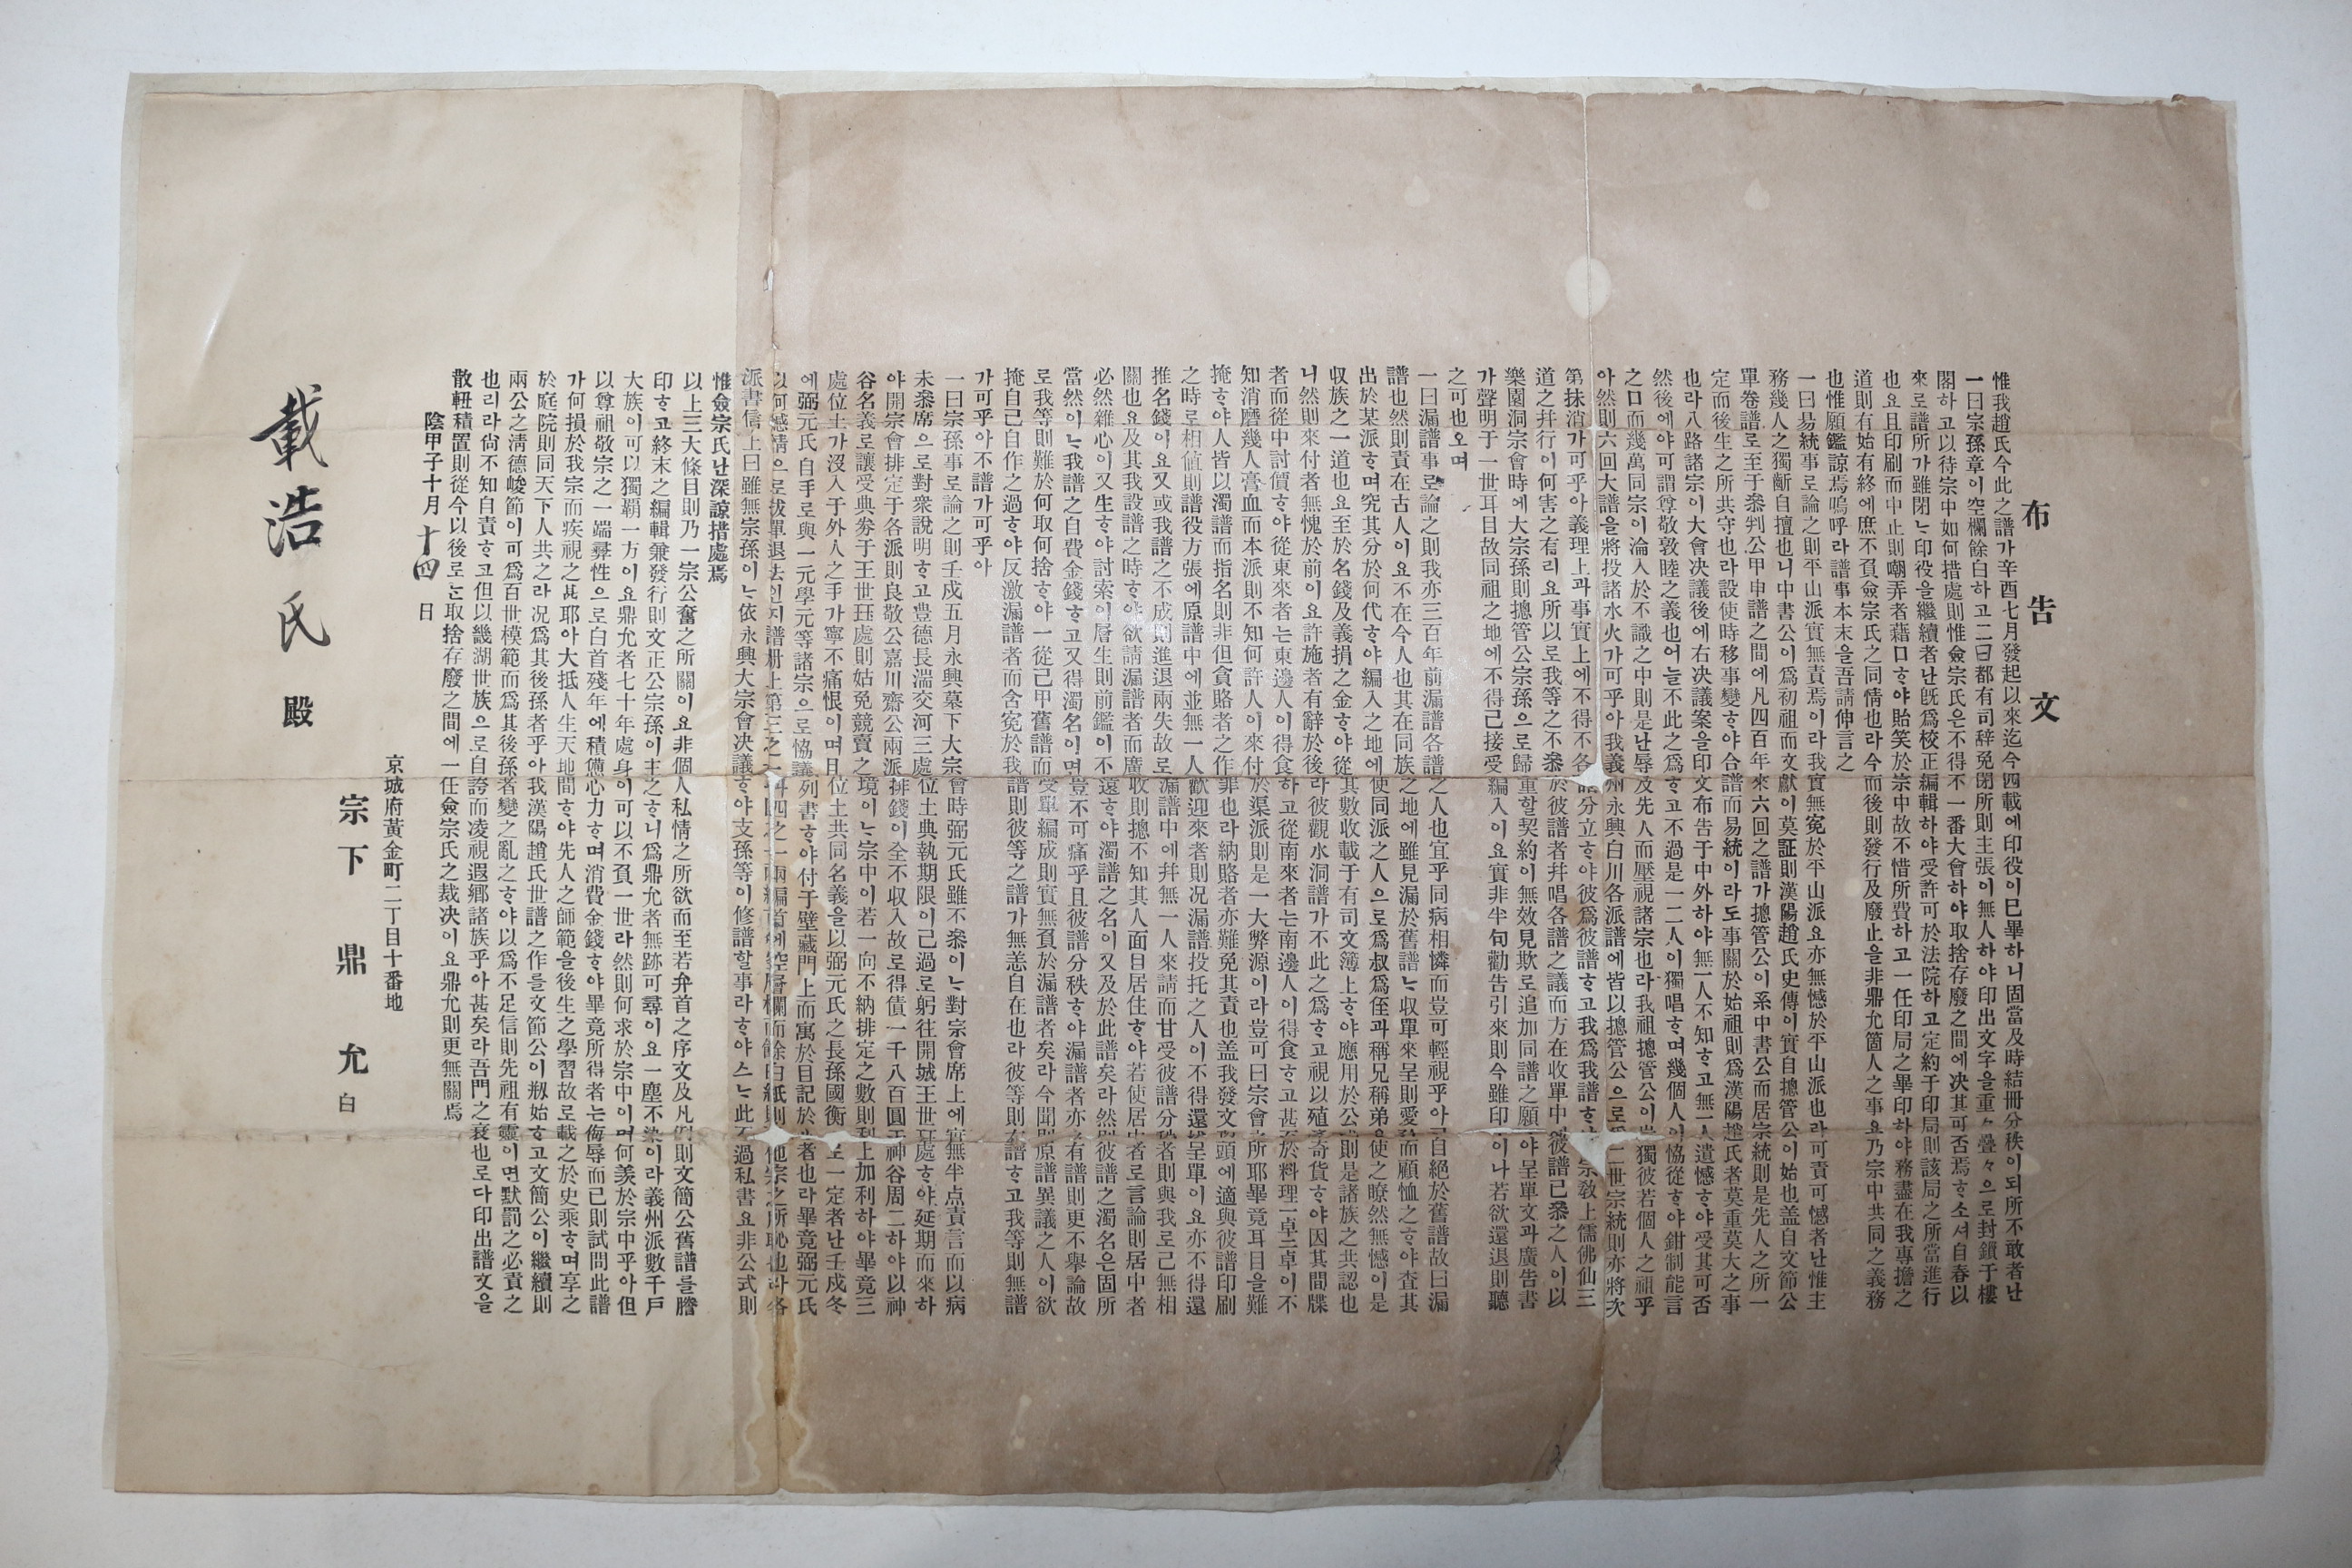 布告文
惟我趙氏今此之譜가辛酉七月發起以來迄今四載에印役이已畢하니固當及時結冊分秩이되所不敢者난
一曰宗孫章이空欄餘白하고二曰都有司辞免閉所則主張이無人하야印出文字을重々疊々으로封鎖于樓
閣하고以待宗中如何措處則惟僉宗氏은不得不一番大會하야取捨存廢之間에决其可否焉ᄒᆞ소셔自春以
來로譜所가雖閉ᄂᆞᆫ印役을繼續者난旣爲校正編輯하야受許可於法院하고定約于印局則該局之所當進行
也요且印刷而中止則嘲弄者藉口ᄒᆞ야貽笑於宗中故不惜所費하고一任印局之畢印하야務盡在我專擔之
道則有始有終에庶不負僉宗氏之同情也라今而後則發行及廢止을非鼎允箇人之事요乃宗中共同之義務
也惟願鑑諒焉嗚呼라譜事本末을吾請伸言之
一曰易統事로論之則平山派實無責焉이라我實無寃於平山派요亦無憾於平山派也라可責可憾者난惟主
務幾人之獨斷自擅也니中書公이爲初祖而文獻이莫証則漢陽趙氏史傳이實自摠管公이始也盖自文節公
單卷譜로至于叅判公甲申譜之間에凡四百年來六回之譜가摠管公이系中書公而居宗統則是先人之所一
定而後生之所共守也라設使時移事變ᄒᆞ야合譜而易統이라도事關於始祖則爲漢陽趙氏者莫重莫大之事
也라八路諸宗이大會决議後에右决議案을印文布告于中外하야無一人不知ᄒᆞ고無一人遺憾ᄒᆞ야受其可否
然後에야可謂尊敬敦睦之義也어늘不此之爲ᄒᆞ고不過是一二人이獨唱ᄒᆞ며幾個人이恊從ᄒᆞ야鉗制能言
之口而幾萬同宗이淪入於不識之中則是난辱及先人而壓視諸宗也라我祖摠管公이豈獨彼若個人之祖乎
아然則六回大譜을將投諸水火가可乎아我義州永興白川各派譜에皆以摠管公으로二世宗統則亦將次
第抹消가可乎아義理上과事實上에不得不各譜分立ᄒᆞ야彼爲彼譜ᄒᆞ고我爲我譜ᄒᆞ야宗敎上儒佛仙三
道之幷行이何害之有리요所以로我等之不叅於彼譜者幷唱各譜之議而方在收單中彼譜已叅之人이以
樂園洞宗會時에大宗孫則摠管公宗孫으로歸重할契約이無效見欺로追加同譜之願야呈單文과廣告書
가聲明于一世耳目故同祖之地에不得已接受編入이요實非半句勸告引來則今雖印이나若欲還退則聽
之可也오며
一曰漏譜事로論之則我亦三百年前漏譜各譜之人也宜乎同病相憐而豈可輕視乎아自絕於舊譜故曰漏
譜也然則責在古人이요不在今人也其在同族之地에雖見漏於舊譜ᄂᆞᆫ収單來呈則愛而顧恤之ᄒᆞ야查其
出於某派ᄒᆞ며究其分於何代ᄒᆞ야編入之地에使同派之人으로爲叔爲侄과稱兄稱弟을使之暸然無憾이是
収族之一道也요至於名錢及義捐之金ᄒᆞ야從其數收載于有司文簿上ᄒᆞ야應用於公則是諸族之共認也
니然則來付者無愧於前이요許施者有辭於後라彼觀水洞譜가不此之爲ᄒᆞ고視以殖奇貨ᄒᆞ야因其間牒
者而從中討價ᄒᆞ야從東來者ᄂᆞᆫ東邊人이得食하고從南來者ᄂᆞᆫ南邊人이得食ᄒᆞ고甚至於料理一卓이不
知消磨幾人膏血而本派則不知何許人이來付於渠派則是一大弊源이라豈可曰宗會所耶畢竟耳目을難
掩ᄒᆞ야人皆以濁譜而指名則非但貪賂者之作罪也라納賂者亦難免其責也盖我發文頭에適與彼譜印刷
之時로相値則譜役方張에原譜中에並無一人歡迎來者則况漏譜投托之人이不得還呈單이요亦不得還
推名錢이요又或我譜之不成則進退兩失故로漏譜中에幷無一人來請而甘受彼譜分秩者則與我로己無相
關也요及其我設譜之時ᄒᆞ야欲請漏譜者而廣收則摠不知其人面目居住ᄒᆞ야若使居中者로言論則居中者
必然雜心이又生ᄒᆞ야討索이層生則前鑑이不遠ᄒᆞ야濁譜之名이又及於此譜矣라然則彼譜之濁名은固所
當然이ᄂᆞᆫ我譜之自費金錢ᄒᆞ고又得濁名이면豈不可痛乎且彼譜分秩ᄒᆞ야漏譜者亦有譜則更不擧論故
로我等則難於何取何捨ᄒᆞ야一從己甲舊譜而受單編成則實無負於漏譜者矣라今聞則原譜異議之人이欲
掩自己自作之過ᄒᆞ야反激漏譜者而含寃於我譜則彼等之譜가無恙自在也라彼等則有譜ᄒᆞ고我等則無譜
가可乎아不譜가可乎아
一曰宗孫事로論之則壬戌五月永興墓下大宗會時弼元氏雖不叅이ᄂᆞᆫ對宗會席上에實無半点責言而以病
未叅席으로對衆說明ᄒᆞ고豊德長湍交河三處位土典執期限이己過로躬往開城王世珏處ᄒᆞ야延期而來하
야開宗會排定于各派則良敬公嘉川齋公兩派排錢이全不収入故로得債一千八百圓于神谷周二하야以神
谷名義로讓受典劵于王世珏處則姑免競賣之境이ᄂᆞᆫ宗中이若一向不納排定之數則利上加利하야畢竟三
處位土가沒入于外人之手가寧不痛恨이며且位土共同名義을以弼元氏之長孫國衡로一定者난壬戌冬
에弼元氏自手로與一元學元等諸宗으로恊議列書ᄒᆞ야付于壁藏門上而寓於目記於心者也라畢竟弼元氏
以何憾情으로拔單退去인지譜冊上第三之一과四之一兩編首에空層欄而餘白紙則他宗之所恥也라各
派書信上曰雖無宗孫이ᄂᆞᆫ依永興大宗會决議ᄒᆞ야支孫等이修譜할事라ᄒᆞ야스ᄂᆞᆫ此不過私書요非公式則
惟僉宗氏난深諒措處焉
以上三大條目則乃一宗公奮之所關이요非個人私情之所欲而至若弁首之序文及凡例則文簡公舊譜를謄
印ᄒᆞ고終末之編輯兼發行則文正公宗孫이主之ᄒᆞ니爲鼎允者無跡可尋이요一塵不染이라義州派數千戶
大族이可以獨覇一方이요鼎允者七十年處身이可以不負一世라然則何求於宗中이며何羨於宗中乎아但
以尊祖敬宗之一端彛性으로白首殘年에積憊心力ᄒᆞ며消費金錢ᄒᆞ야畢竟所得者ᄂᆞᆫ侮辱而已則試問此譜
가何損於我宗而疾視之甚耶아大抵人生天地間ᄒᆞ야先人之師範을後生之學習故로載之於史乘ᄒᆞ며享之
於庭院則同天下人共之라况爲其後孫者乎아我漢陽趙氏世譜之作를文節公이刱始ᄒᆞ고文簡公이繼續則
兩公之淸德峻節이可爲百世模範而爲其後孫者變之亂之ᄒᆞ야以爲不足信則先祖有靈이면默罰之必責之
也리라尙不知自責ᄒᆞ고但以畿湖世族으로自誇而凌視遐鄕諸族乎아甚矣라吾門之衰也로다印出譜文을
散軒積置則從今以後로ᄂᆞᆫ取捨存廢之間에一任僉宗氏之裁决이요鼎允則更無關焉
陰甲子十月十四日
京城府黃金町二丁目十番地
宗下 鼎允 白
載浩氏 殿